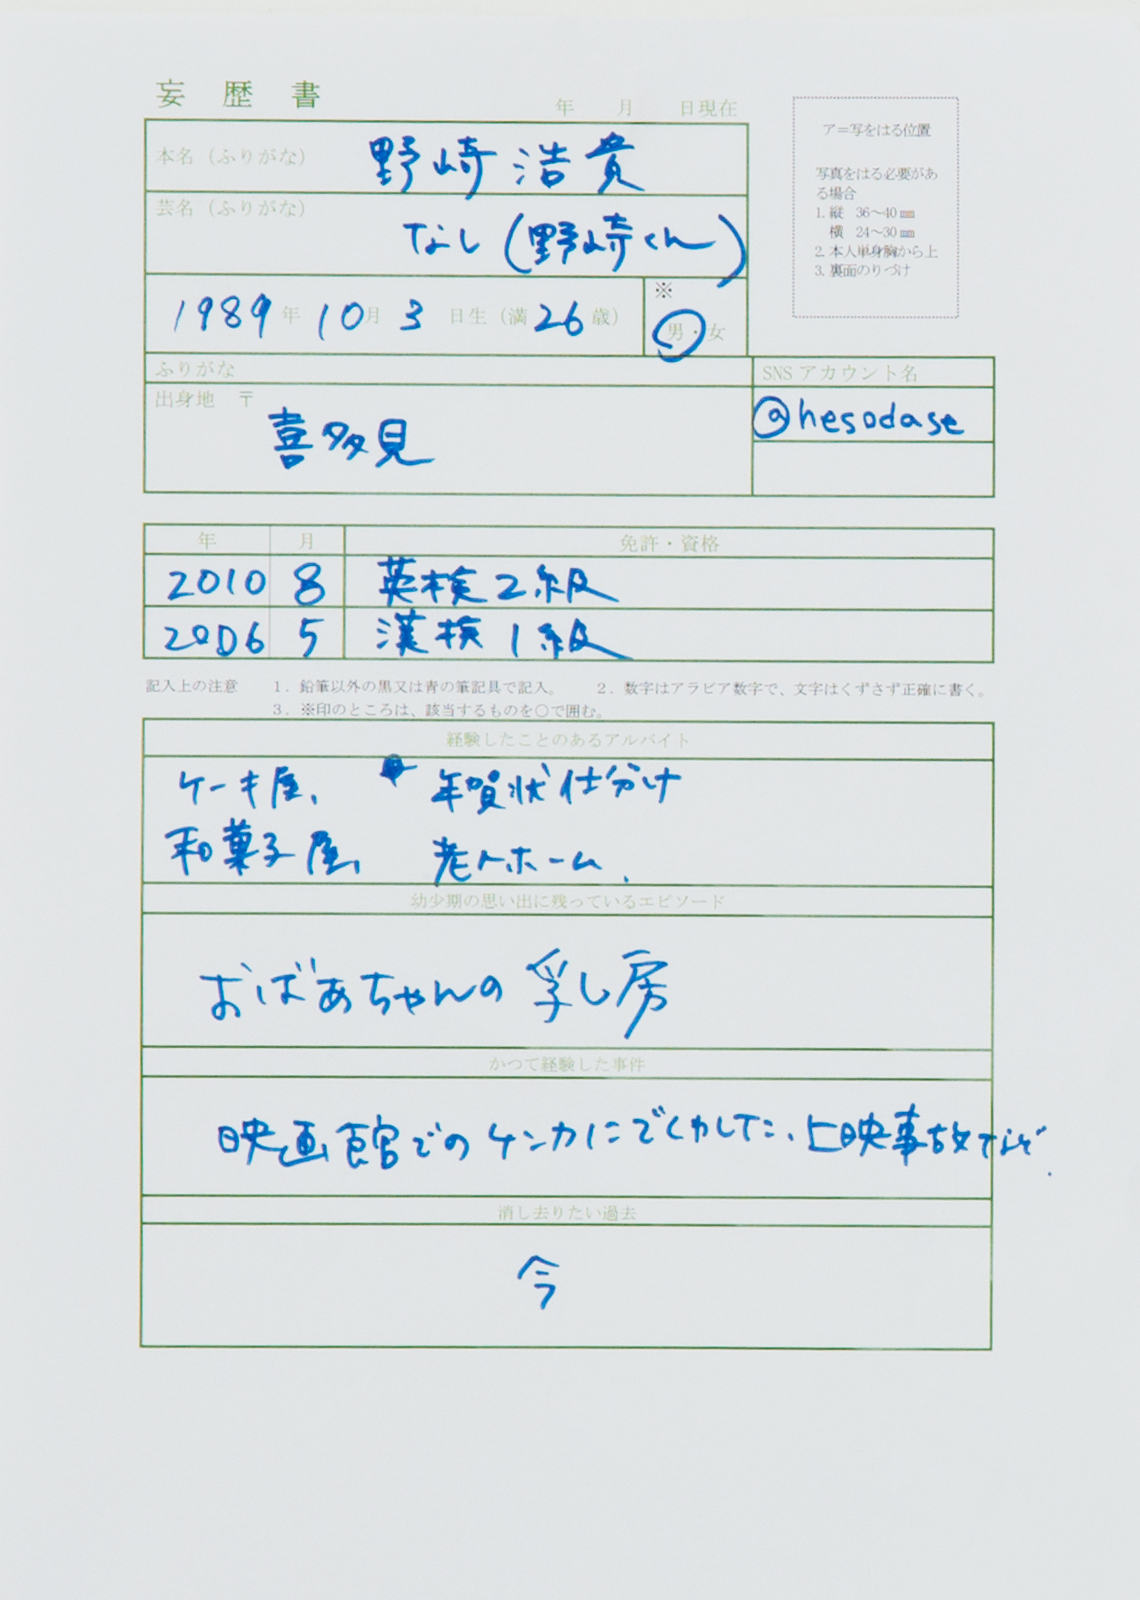 妄歴書
年 月 日現在
ア=写をはる位置
写真をはる必要があ
る場合
1.縦 36〜40㎜
横 24〜30㎜
2.本人単身胸から上
3.裏面のりづけ
本名（ふりがな） 野崎浩貴
芸名（ふりがな）
なし(野崎くん)
1989年10月3日生（満26歳）
※
男・女
ふりがな
SNSアカウント名
出身地 〒
喜多見
@hesodase
年 月 免許・資格
2010 8 英検2級
2006 5 漢検1級
記入上の注意 1．鉛筆以外の黒又は青の筆記具で記入。 2．数字はアラビア数字で、文字はくずさず正確に書く。
3．※印のところは、該当するものを○で囲む。
経験したことのあるアルバイト
ケーキ屋、 年賀状仕分け
和菓子屋、 老人ホーム、
幼少期の思い出に残っているエピソード
おばあちゃんの乳し房
かつて経験した事件
映画館でのケンカにでくわした、上映事故など.
消し去りたい過去
今